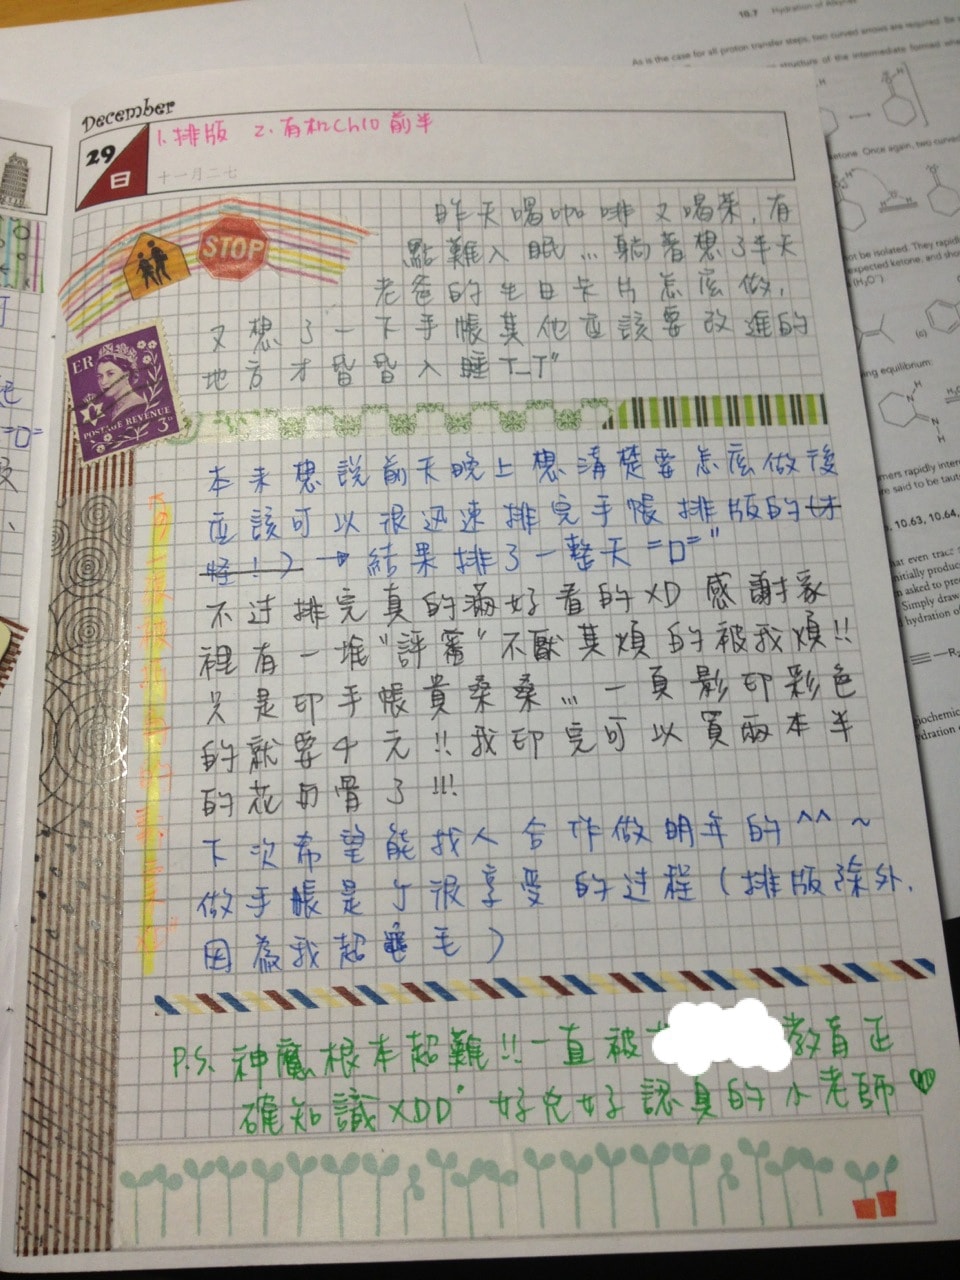 10.7 Hydration of Alkynes
As is the case for all proton transfer steps, two curved arrows are required.
structure of the intermediate formed
ketone. Once again, two curved
not be isolated. They rapidly
expected ketone, and
(H₃O⁺)
(c)
ing equilibrium:
mers rapidly
re said to be
, 10.63, 10.64,
hat even trace
nitially
n asked to
Simply draw
hydration of
December
29
日
十一月二七
1.排版 2.有机Ch10前半
STOP
昨天喝咖啡又喝茶,有
點難入眠...躺著想了半天
老爸的生日卡片怎底做,
又想了一下手帳其他应該要改進的
地方才昏昏入睡T_T"
ER
POSTAGE REVENUE
3D
本来想說前天晚上想清楚要怎底做後
应該可以很迅速排完手帳排版的(才
怪!)→結果排了一整天=D="
不过排完真的滿好看的XD 感謝家
裡有一堆"評審"不厭其煩的被我煩!!
只是印手帳貴桑桑...一頁影印彩色
的就要4元!!我印完可以買兩本半
的花甪骨了!!!
下次希望能找人合作做明年的^^~
做手帳是个很享受的过程(排版除外,
因為我超龜毛)
P.S.神魔根本超難!!一直被
教育正
確知識XDD"好兇好認真的小老師♡